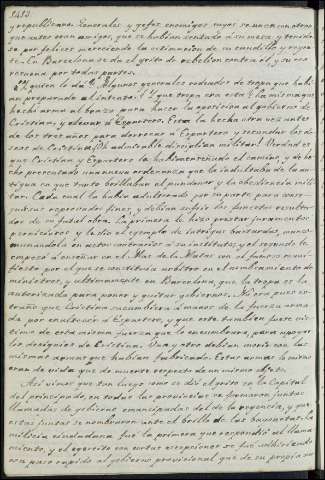 2412
y republicano. Generales y gefes enemigos suyos se unen con otros
que antes eran amigos, que se habian sentado á su mesa, y tenido
se por felices mereciendo la estimacion de su caudillo y regen
te. En Barcelona se da el grito de rebelion contra él, y su eco
resuena por todas partes.
¿Y quien lo da? Algunos generales rodeados de tropa que habi
an preparado al intento. ¿Y que tropa era esta? la misma que
hechó armas al brazo para hacer la oposicion al gobierno de
Cristina, y elevar á Espartero. Esta la hecha otra vez antes
de los tres años para derrocar á Espartero y secundar los de
seos de Cristina. ¡Oh admirable disciplina militar! Verdad es
que Cristina y Espartero la habian enseñado el camino, y de he
cho, procreado una nueva ordenanza que la indultaba de la an
tigua en que tanto brillaban el pundonor y la obediencia mili
tar. Cada cual la habia adulterado por su parte para conse
guir sus reprobados fines, y debian sentir los funestos resulta
dos de su fatal obra. La primera la hizo prestar juramentos
perniciosos y le dió el exemplo de intrigas bastardas, mance
munandola en actos contrarios á su instituto; y el segundo la
empezó á enseñar en el Mas de las Matas con el famoso mani
fiesto por el que se constituia arbitro en el nombramiento de
ministros, y ultimamente en Barcelona, que la tropa es la
autorizada para poner y quitar gobiernos. No era pues es
traño que Cristina sucumbiera á manos de la fuerza arma
da para entronizar á Espartero, y que este tambien fuese vic
tima de esta misma fuerza que le encumbrara, para apoyar
los designios de Cristina. Uno y otro debian morir con las
mismas armas que habian fabricado. Estas armas lo mismo
eran de vida que de muerte respecto de un mismo objeto.
Asi vimos que tan luego como se dió el grito en la capital
del principado, en todas las provincias se formaron juntas
llamadas de gobierno emancipadas del de la regencia, y que
estas juntas se nombraron ante el brillo de las bayonetas. La
milicia ciudadana fué la primera que respondió al llama
miento, y el egercito con cortas escepciones se fué adhiriendo
con paso rapido al gobierno provisional que de su propia au